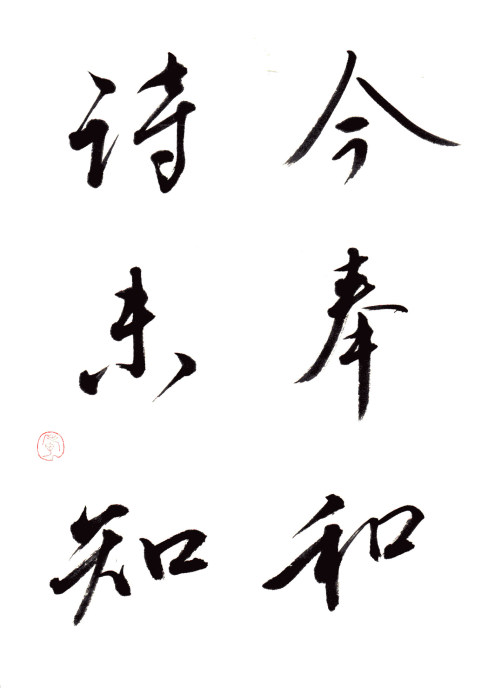 今奉和
诗未知